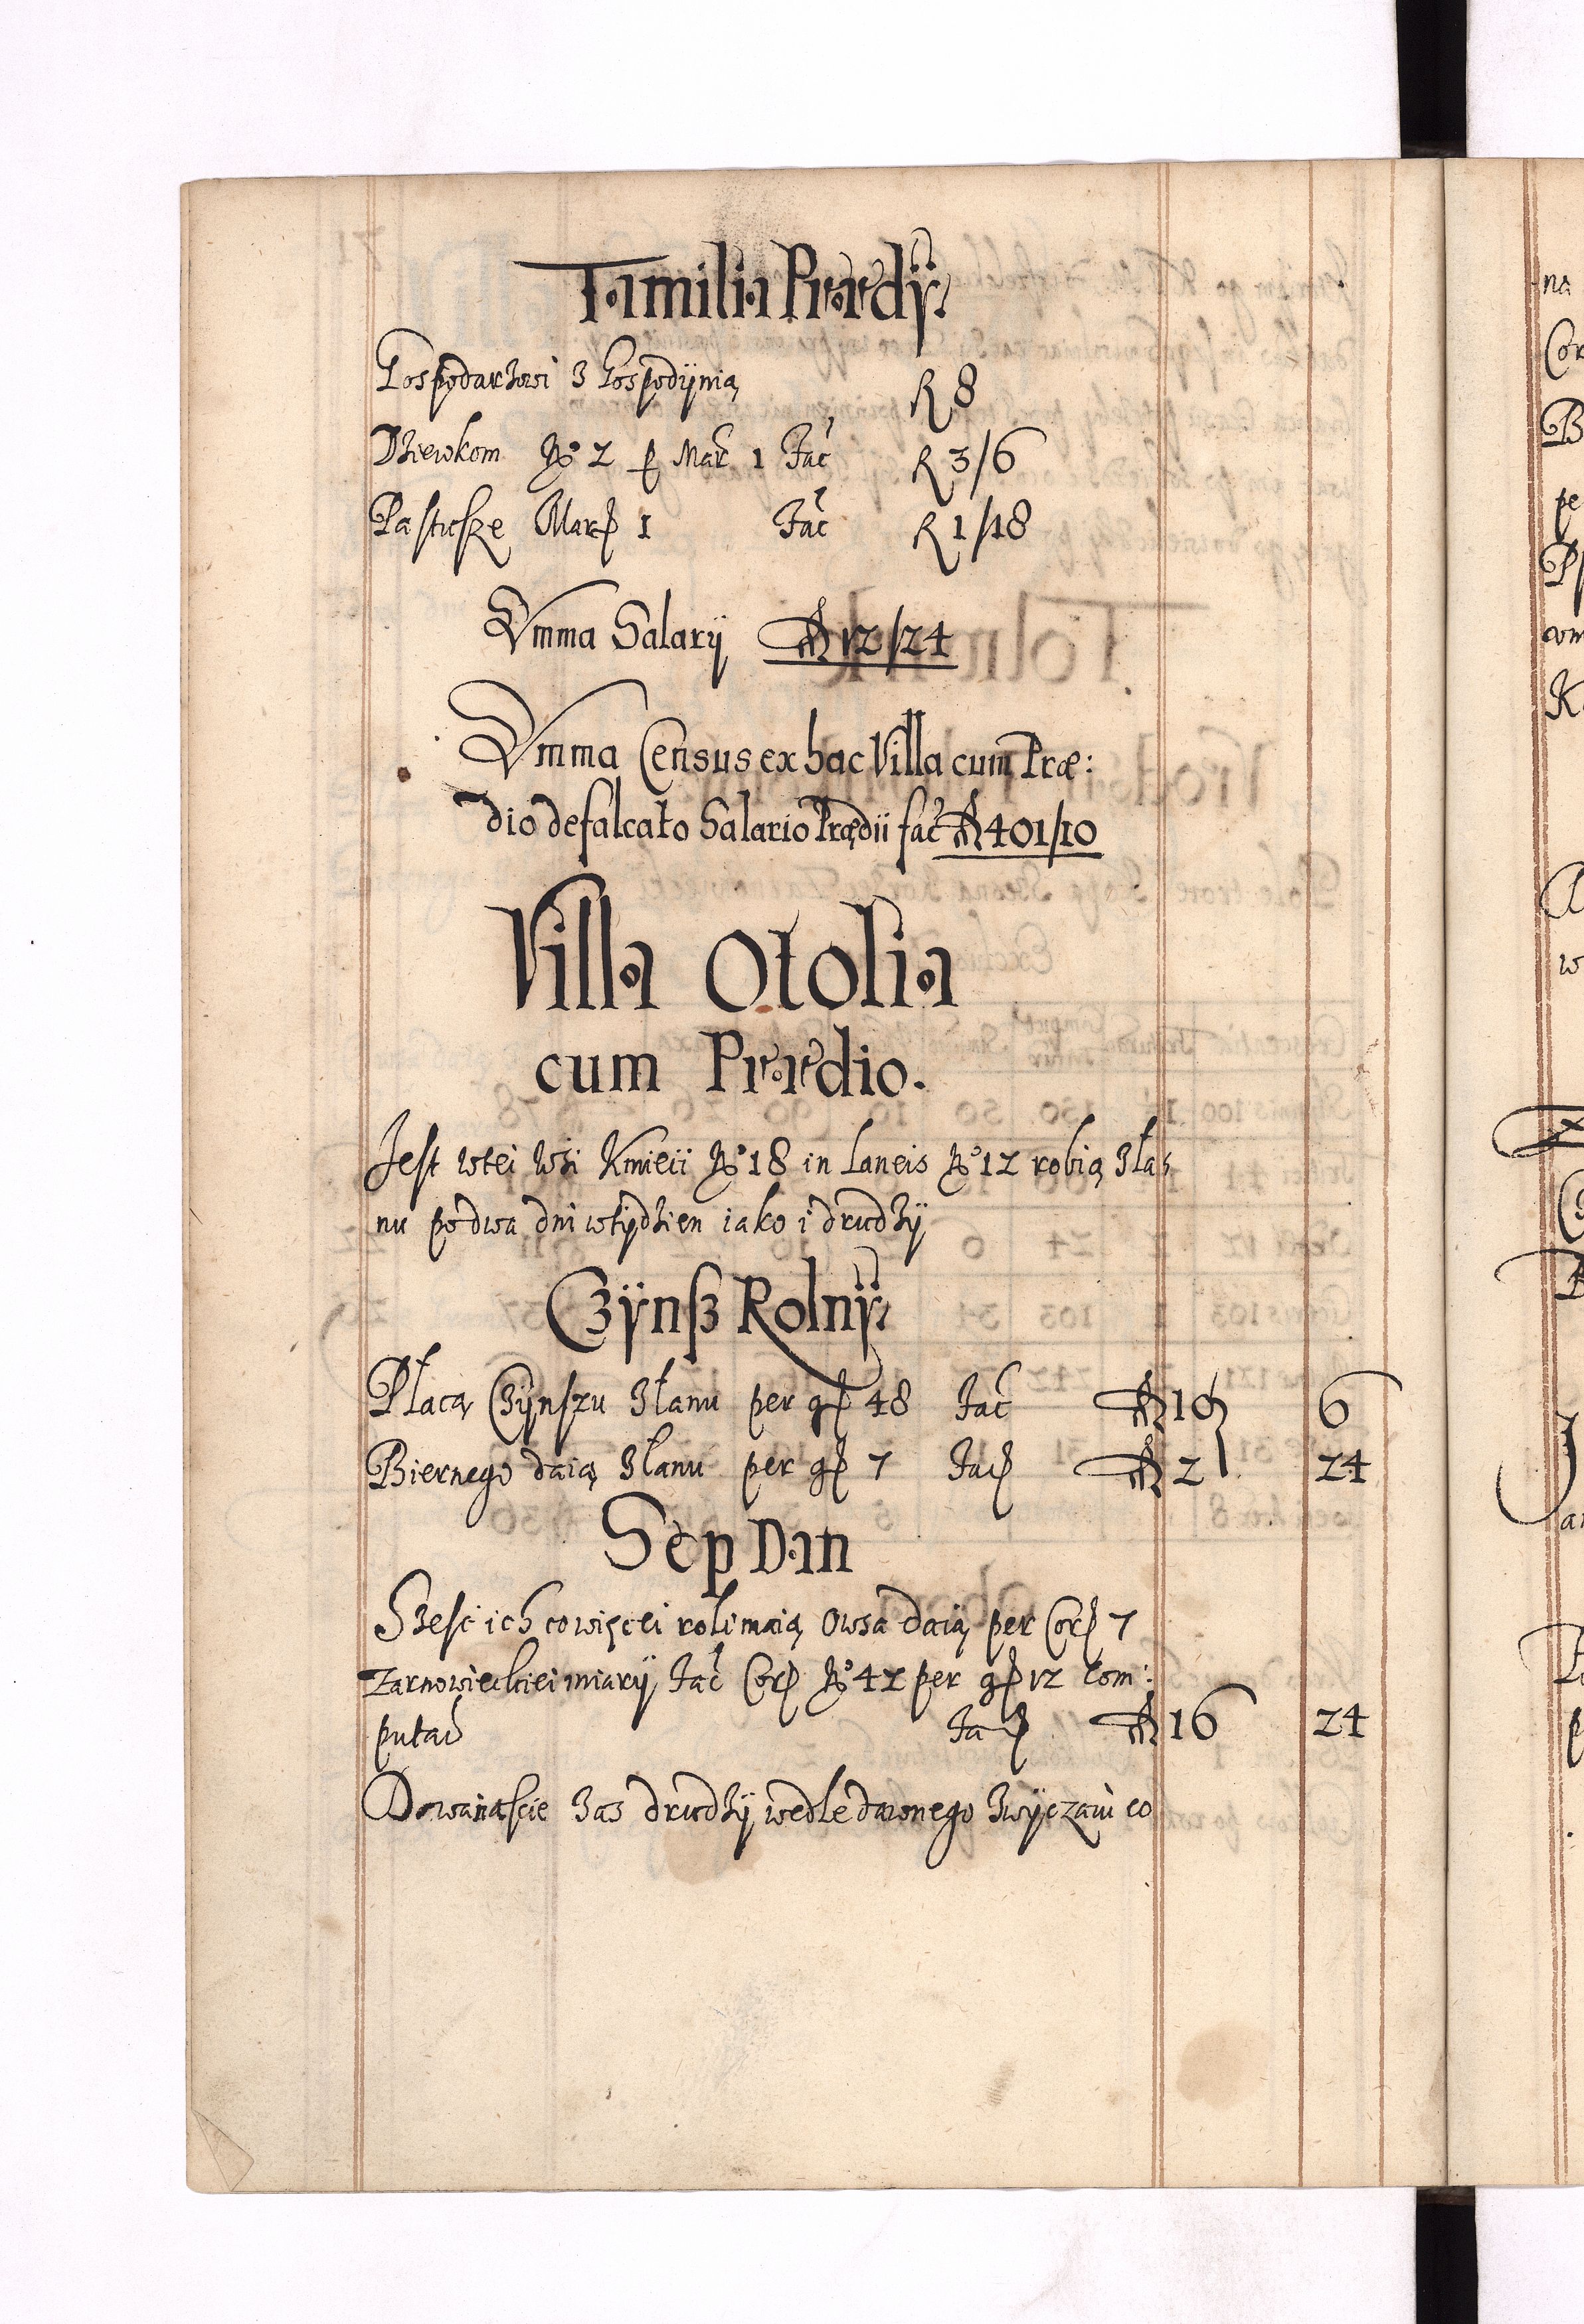 Familia Prædÿ
Gospodarzowi z Gospodÿnią fl 8
Dziewkom No 2 p Mar 1 fac fl 3/6
Pastusze Marc 1 fac fl 1/18
Summa Salarÿ fl 12/24
Summa Census ex hac Villa cum Præ:
dio defalcato Salario Prædii fac fl 401/10
Villa Otolia
cum Prædio.
Jest wtei Wsi Kmieii No 18 in Laneis No 12 robią zła
nu po dwa dni wtÿdzien iako i drudzÿ
Czÿnsz Rolnÿ
Płacą Czÿnszu złanu per gr 48 fac fl 19 6
Biernego daią złanu per gr 7 fac fl 2 24
Sep Dan
Szesc ich cowięcei roli maią Owsa daią per Cor 7
Zarnowieckiei miarÿ fac Cor No 42 per gr 12 com:
putad fac fl 16 24
Dwanascie zas drudzÿ wedle dawnego zwÿczaiu co